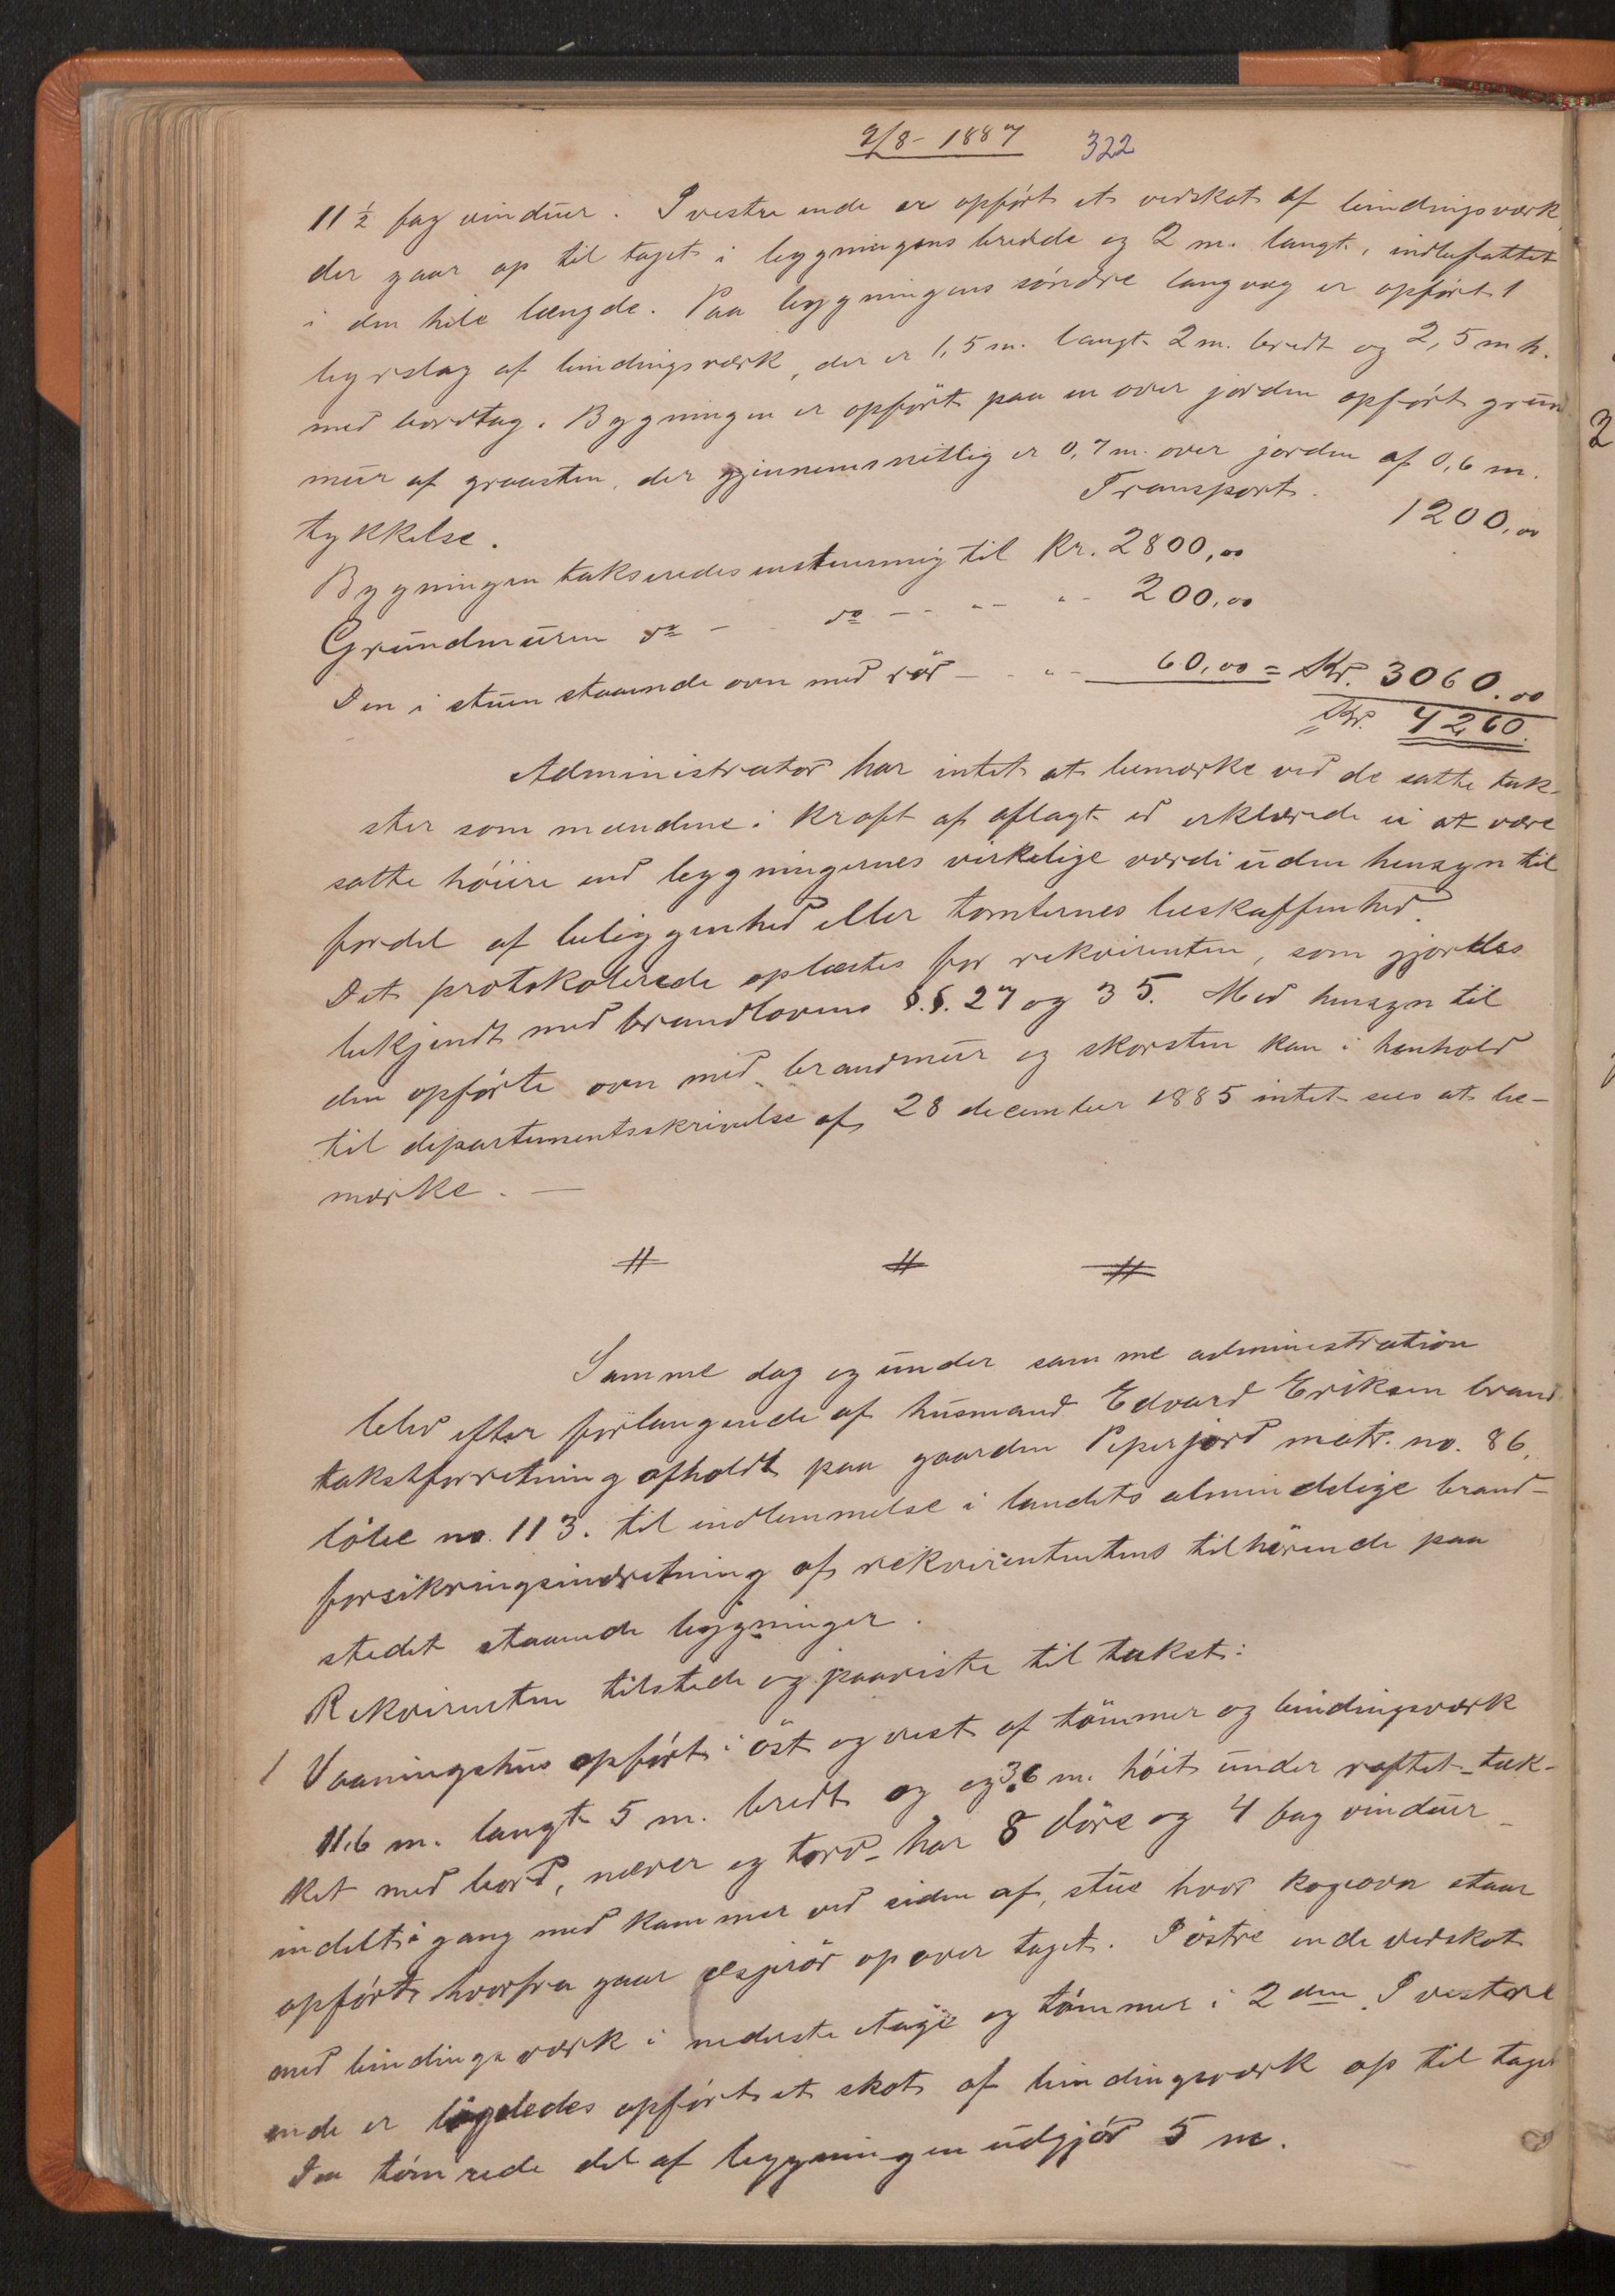 9/8 - 1887 322
11 ½ fag vinduer. I vestre ende er opført et vedskot af bindingsværk,
der gaar op til taget i bygningens bredde og 2 m. langt, indbefattet
i den hele længde. Paa bygningens søndre langvæg er opført 1
bygslag af bindingsværk, der er 1,5 m. langt 2 m. bredt og 2,5 m h.
med bordtag. Bygningen er opført paa en over jorden opført grun
mur af graasten, der gjennemsnitlig er 0,7 m. over jorden af 0,6 m.
tykkelse. Transport. 1200,00
Bygningen takseredes enstemmig til Kr. 2800,00
Grundmuren do - do - - " - 200,00
Den i stuen staaende ovn med rör - " - 60,00 = Kr. 3060.00
Kr. 4260.
Administrator har intet at bemærke ved de satte tak-
ster som mændene i kraft af aflagt ed erklærede ei at være
satte høiere end bygningernes virkelige værdi uden hensyn til
fordel af beliggenhed eller tomternes beskaffenhed.
Det protokolerede oplæstes for rekvirenten, som gjordes
bekjendt med brandlovens §.§. 27 og 35. Med hensyn til
den opførte ovn med brandmur og skorsten kan i henhold
til departementsskrivelse af 28 december 1885 intet sees at be-
mærke. —
# # #
Samme dag og under samme administration
blev efter forlangende af husmand Edvard Eriksen brand
takstforretning afholdt paa gaarden Peperjord matr. no. 86,
løbe no. 113. til indlemmelse i landets almindelige brand-
forsikringsindretning af rekvirententens tilhørende paa
stedet staaende bygninger.
Rekvirenten tilstede og paaviste til takst:
1 Vaaningshus opført i öst og vest af tömmer og bindingsværk
11,6 m. langt 5 m. bredt og og 3,6 m. höit under raftet - tæk-
ket med bord, næver og torv - har 8 döre og 4 fag vinduer -
indelt i gang med kammer ved siden af, stue hvor kogeovn staar
opført hvorfra gaar jespirör op over taget. I östre ende vedskot
med bindingsværk i nederste etage og tömmer i 2den. I vestre
ende er ligeledes opført et skot af bindingsværk op til taget
Den tömrede del af bygningen udgjör 5 m.